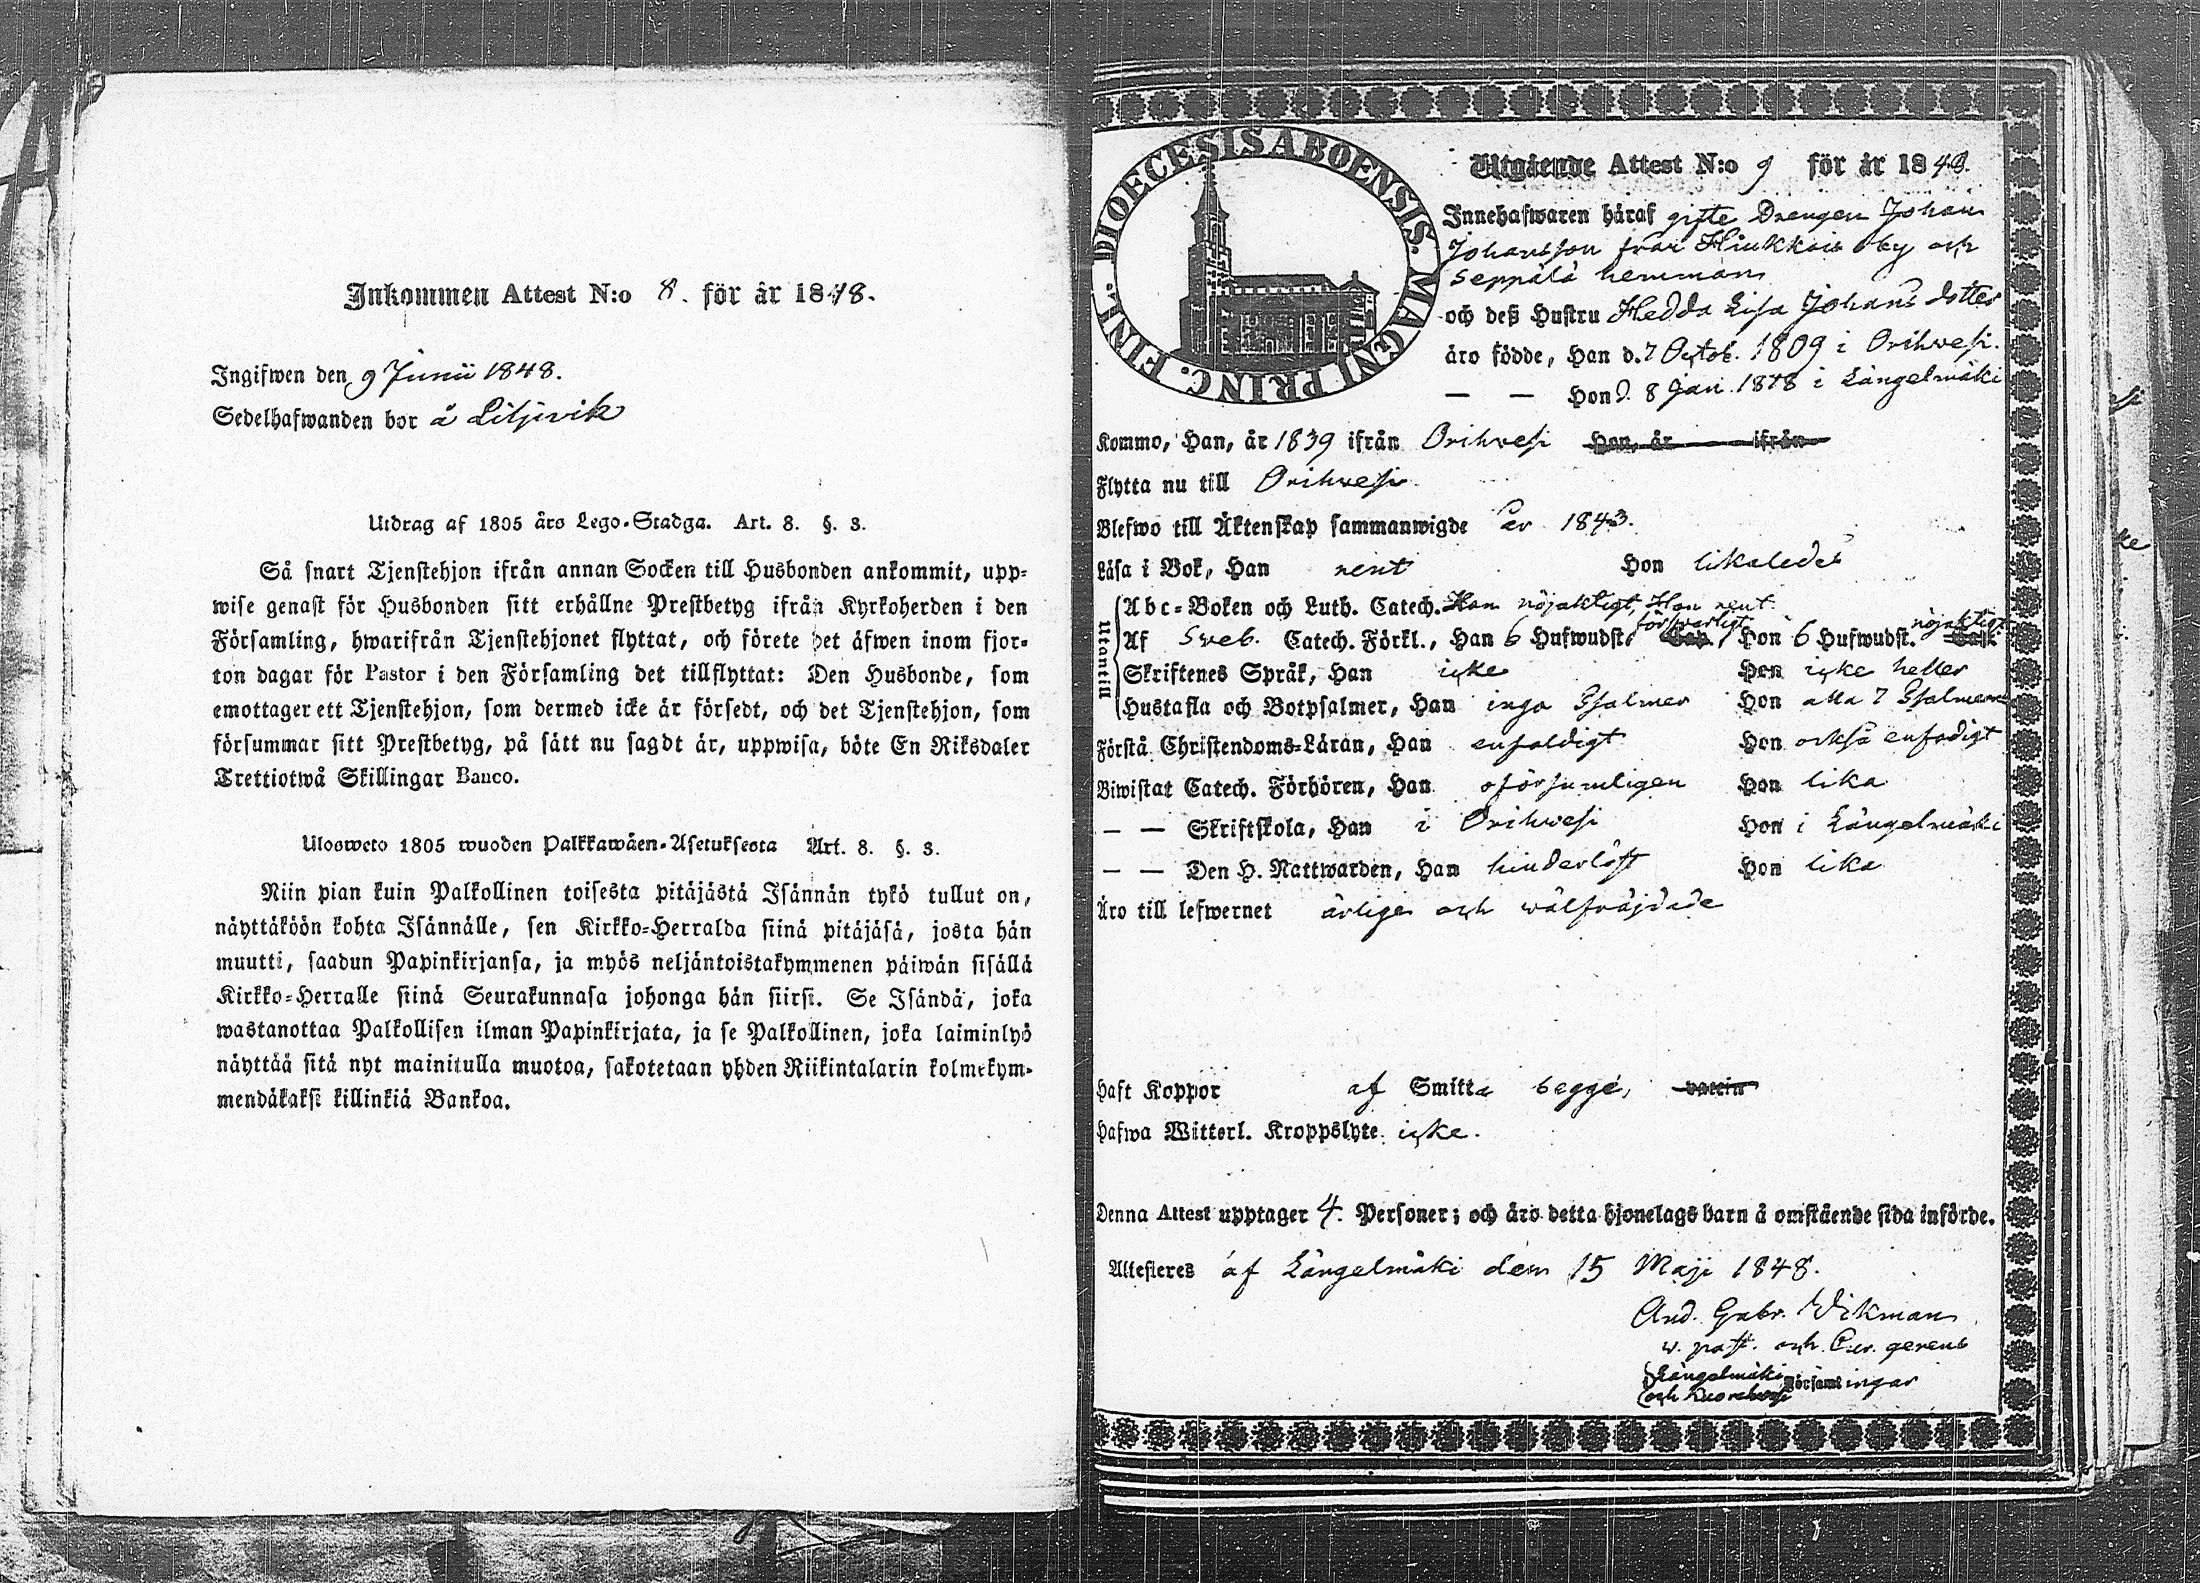 Inkommen Attest N:o 8. för år 1848.
Ingifwen den 9 Junii 1848.
Sedelhafwanden bor å Liljivik
Utdrag af 1805 års Lego-Stadga. Art. 8. §. 3.
Så snart Tjenstehjon ifrån annan Socken till Husbonden ankommit, upp-
wise genast för Husbonden sitt erhållne Prestbetyg ifrån Kyrkoherden i den
Församling, hwarifrån Tjenstehjonet flyttat, och förete det äfwen inom fjor-
ton dagar för Pastor i den Församling det tillflyttat: Den Husbonde, som
emottager ett Tjenstehjon, som dermed icke är försedt, och det Tjenstehjon, som
försummar sitt Prestbetyg, på sätt nu sagdt är, uppwisa, böte En Riksdaler
Trettiotwå Skillingar Banco.
Ulosweto 1805 wuoden Palkkawäen-Asetuksesta Art. 8. §. 3.
Niin pian kuin Palkollinen toisesta pitäjästä Isännän tykö tullut on,
näyttäköön kohta Isännälle, sen Kirkko-Herralda siinä pitäjäsä, josta hän
muutti, saadun Papinkirjansa, ja myös neljäntoistakymmenen päiwän sisällä
Kirkko-Herralle siinä Seurakunnasa johonga hän siirsi. Se Isändä, joka
wastanottaa Palkollisen ilman Papinkirjata, ja se Palkollinen, joka laiminlyö
näyttää sitä nyt mainitulla muotoa, sakotetaan yhden Riikintalarin kolmekym-
mendäkaksi killinkiä Bankoa.
DIOECESIS ABOENSIS. MAGNI PRINC. FINL.
Utgående Attest N:o 9 för år 1848.
Innehafwaren häraf gifte Drengen Johan
Johansson från Hiukkais by och
Seppälä hemman
och deß Hustru Hedda Lisa Johans dotter
äro födde, Han d. 7 Octob. 1809 i Orihvesi.
— — Hon d. 8 Jan. 1818 i Längelmäki
Kommo, Han, år 1839 ifrån Orihvesi Hon, år ifrån
Flytta nu till Orihvesi
Blefwo till Äktenskap sammanwigde år 1843.
Läsa i Bok, Han rent Hon likaledes
Utantill
Abc-Boken och Luth. Catech. Han nöjaktigt, Hon rent
Af Sveb. Catech. Förkl., Han 6 Hufwudst. försvarligt Cap. Hon 6 Hufwudst. nöjaktigt Cap.
Skriftenes Språk, Han icke Hon icke heller
Hustafla och Botpsalmer, Han inga Psalmer Hon alla 7 Psalmerne
Förstå Christendoms-Läran, Han enfaldigt Hon också enfadigt
Biwistat Catech. Förhören, Han oförsumligen Hon lika
— — Skriftskola, Han i Orihvesi Hon i Längelmäki
— — Den H. Nattwarden, Han hinderlöst Hon lika
Äro till lefwernet ärliga och wälfräjdade
Haft Koppor af Smitta begge, vaccin
Hafwa Witterl. Kroppslyte icke.
Denna Attest upptager 4. Personer; och äro detta hjonelags barn å omstående sida införde.
Attesteres af Längelmäki den 15 Maji 1848.
And. Gabr. Wikman
v. past. och Cur. gerens
Längelmäki
och Kuorehvesi Församlingar